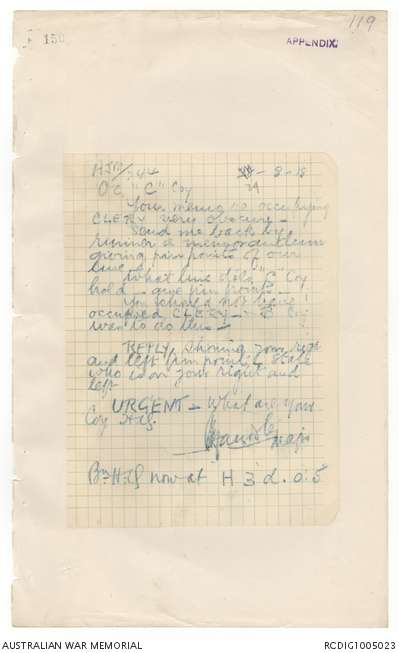 119
E 150
APPENDIX
HJM/244
29-8-18
O.C "C" Coy
Your memo re occupying
CLERY very obscure -
Send me back by
runner a memorandum
giving pin points of our
line -
What line does "C" Coy
hold - give pin points -
You should not have
occupied CLERY - "B" Coy
went to do this -
REPLY, showing your right
and left pin points & state
who is on your right and
left
URGENT - What are your
Coy H.Q.
Major
Bn H.Q now at H 3 d. 0.5
AUSTRALIAN WAR MEMORIAL
RCDIG1005023